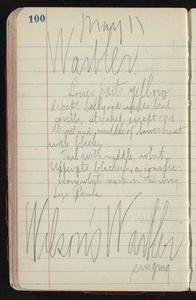 100
May 11
Warbler
Lower parts yellow
except belly and under tail
coverts, streaked, except
and middle of lower breast
with black.
Tail with middle, white
Upperparts blackish, a conspic-
white mark on the wing
Legs
Wilson's Warbler
singing